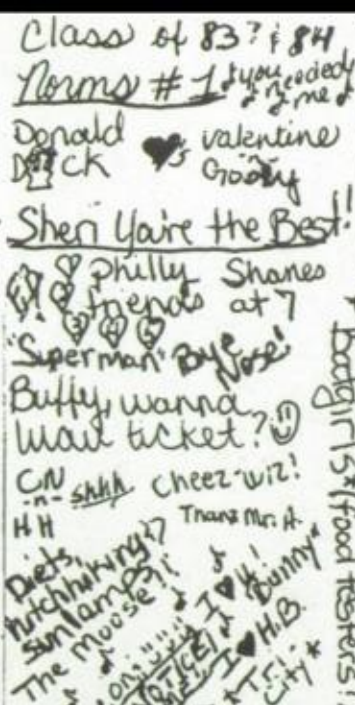 Class of 83? & 84
Norms #1 ♪you needed♪
♪ me ♪
Donald ♥'s valentine
Duck Goofy
Sheri You're the Best!
Philly Shanes
friends at 7
"Superman" Bye Nose!
Buffy, wanna
wait ticket?
CN shhh Cheez-wiz!
-n-
HH Thanx Mr. A.
Diets,
hitchhiking??
sunlamps?!
The moose!
I ♥ U!
Bunny*
I ♥ H.B.
badgirls*(food testers!)